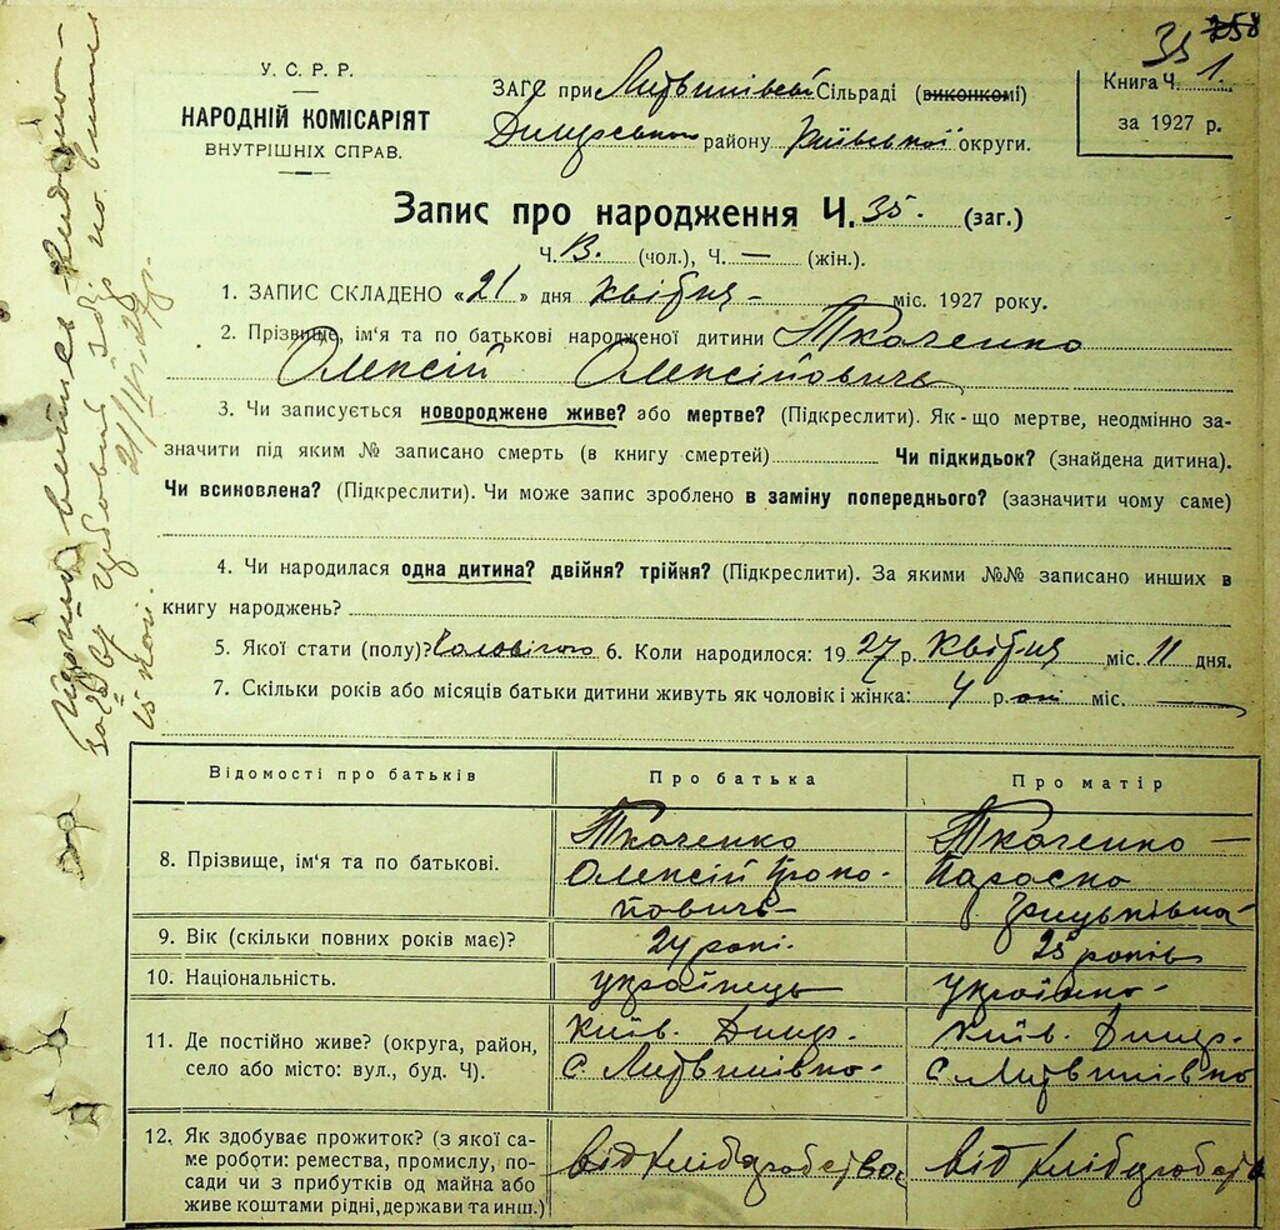 35 258
У. С. Р. Р.
НАРОДНІЙ КОМІСАРІЯТ
ВНУТРІШНІХ СПРАВ.
ЗАГС при Литвинівській Сільраді (виконкомі)
Димерського району Київської округи.
Книга Ч. 1.
за 1927 р.
Запис про народження Ч. 35. (заг.)
Ч. 13. (чол.), Ч. — (жін.).
1. ЗАПИС СКЛАДЕНО «21» дня квітня - міс. 1927 року.
2. Прізвище, ім'я та по батькові народженої дитини Ткаченко
Олексій Олексійович
3. Чи записується новороджене живе? або мертве? (Підкреслити). Як-що мертве, неодмінно за-
значити під яким № записано смерть (в книгу смертей) Чи підкидьок? (знайдена дитина).
Чи всиновлена? (Підкреслити). Чи може запис зроблено в заміну попереднього? (зазначити чому саме)
4. Чи народилася одна дитина? двійня? трійня? (Підкреслити). За якими №№ записано инших в
книгу народжень?
5. Якої стати (полу)? Чоловічого 6. Коли народилося: 1927 р. квітня міс. 11 дня.
7. Скільки років або місяців батьки дитини живуть як чоловік і жінка: 4 р. міс. —
Відомості про батьків Про батька Про матір
8. Прізвище, ім'я та по батькові. Ткаченко Олексій Проко-пович Ткаченко - Параска Грицьківна
9. Вік (скільки повних років має)? 24 рокі. 25 років
10. Національність. українець українка.
11. Де постійно живе? (округа, район, Київ. Димер. Київ. Димер.
село або місто: вул., буд. Ч). с. Литвинівка. с. Литвинівка
12. Як здобуває прожиток? (з якої са-
ме роботи: ремества, промислу, по- від хліборобства від хліборобства
сади чи з прибутків од майна або
живе коштами рідні, держави та инш.)